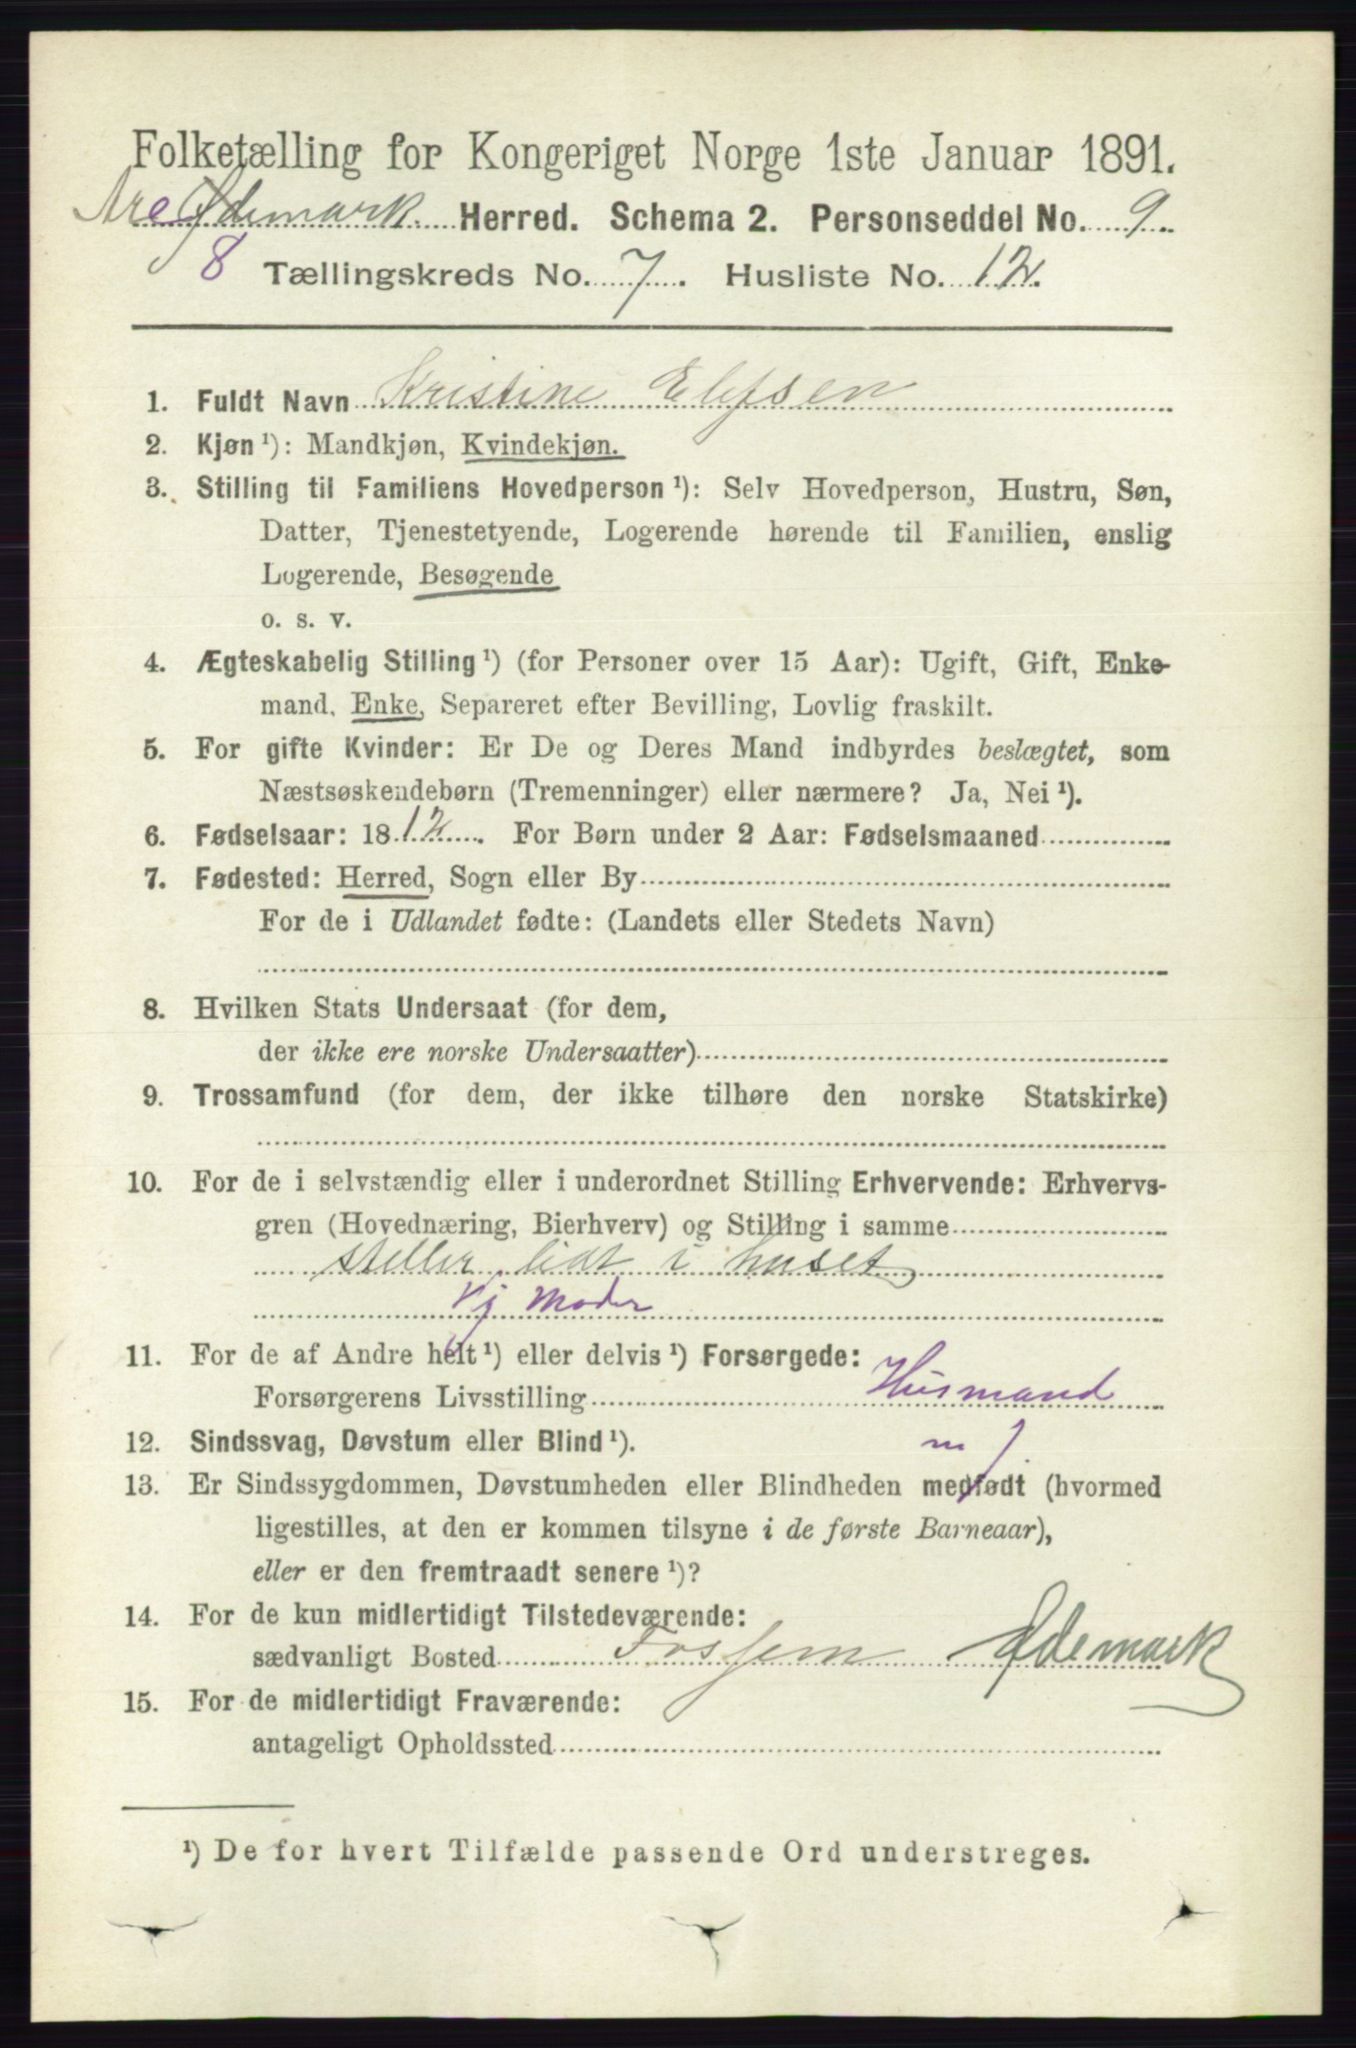 Folketælling for Kongeriget Norge 1ste Januar 1891.
Are Ødemark Herred. Schema 2. Personseddel No. 9
8 Tællingskreds No. 7. Husliste No. 12.
1. Fuldt Navn Kristine Elefsen
2. Kjøn ¹): Mandkjøn, Kvindekjøn.
3. Stilling til Familiens Hovedperson ¹): Selv Hovedperson, Hustru, Søn,
Datter, Tjenestetyende, Logerende hørende til Familien, enslig
Logerende, Besøgende
o. s. v.
4. Ægteskabelig Stilling ¹) (for Personer over 15 Aar): Ugift, Gift, Enke-
mand, Enke, Separeret efter Bevilling, Lovlig fraskilt.
5. For gifte Kvinder: Er De og Deres Mand indbyrdes beslægtet, som
Næstsøskendebørn (Tremenninger) eller nærmere? Ja, Nei ¹).
6. Fødselsaar: 1812. For Børn under 2 Aar: Fødselsmaaned
7. Fødested: Herred, Sogn eller By
For de i Udlandet fødte: (Landets eller Stedets Navn)
8. Hvilken Stats Undersaat (for dem,
der ikke ere norske Undersaatter)
9. Trossamfund (for dem, der ikke tilhøre den norske Statskirke)
10. For de i selvstændig eller i underordnet Stilling Erhvervende: Erhvervs-
gren (Hovednæring, Bierhverv) og Stilling i samme
steller lidt i huset
Moder
11. For de af Andre helt ¹) eller delvis ¹) Forsørgede:
Forsørgerens Livsstilling Husmand
12. Sindssvag, Døvstum eller Blind ¹).
13. Er Sindssygdommen, Døvstumheden eller Blindheden medfødt (hvormed
ligestilles, at den er kommen tilsyne i de første Barneaar),
eller er den fremtraadt senere ¹)?
14. For de kun midlertidigt Tilstedeværende:
sædvanligt Bosted Ødemark
15. For de midlertidigt Fraværende:
antageligt Opholdssted
¹) De for hvert Tilfælde passende Ord understreges.